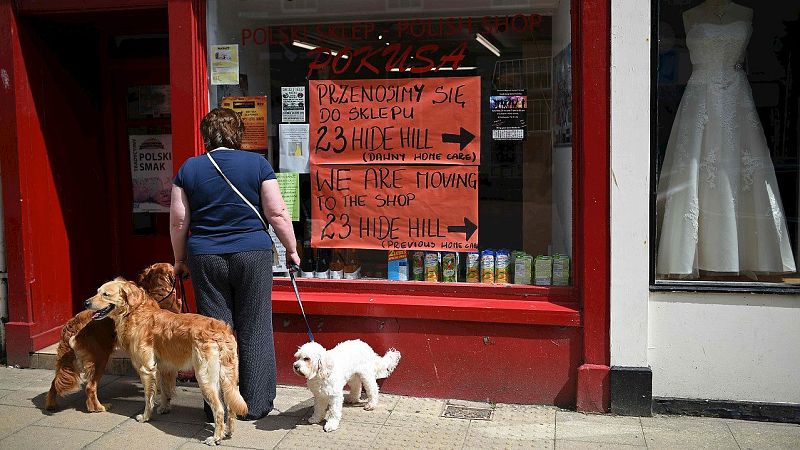 POLSKI SKLEP - POLISH SHOP
POKUSA
PRZENOSIMY SIĘ
DO SKLEPU
23 HIDE HILL
(DAWNY HOME CARE)
WE ARE MOVING
TO THE SHOP
23 HIDE HILL
(PREVIOUS HOME CARE)
POLSKI
SMAK